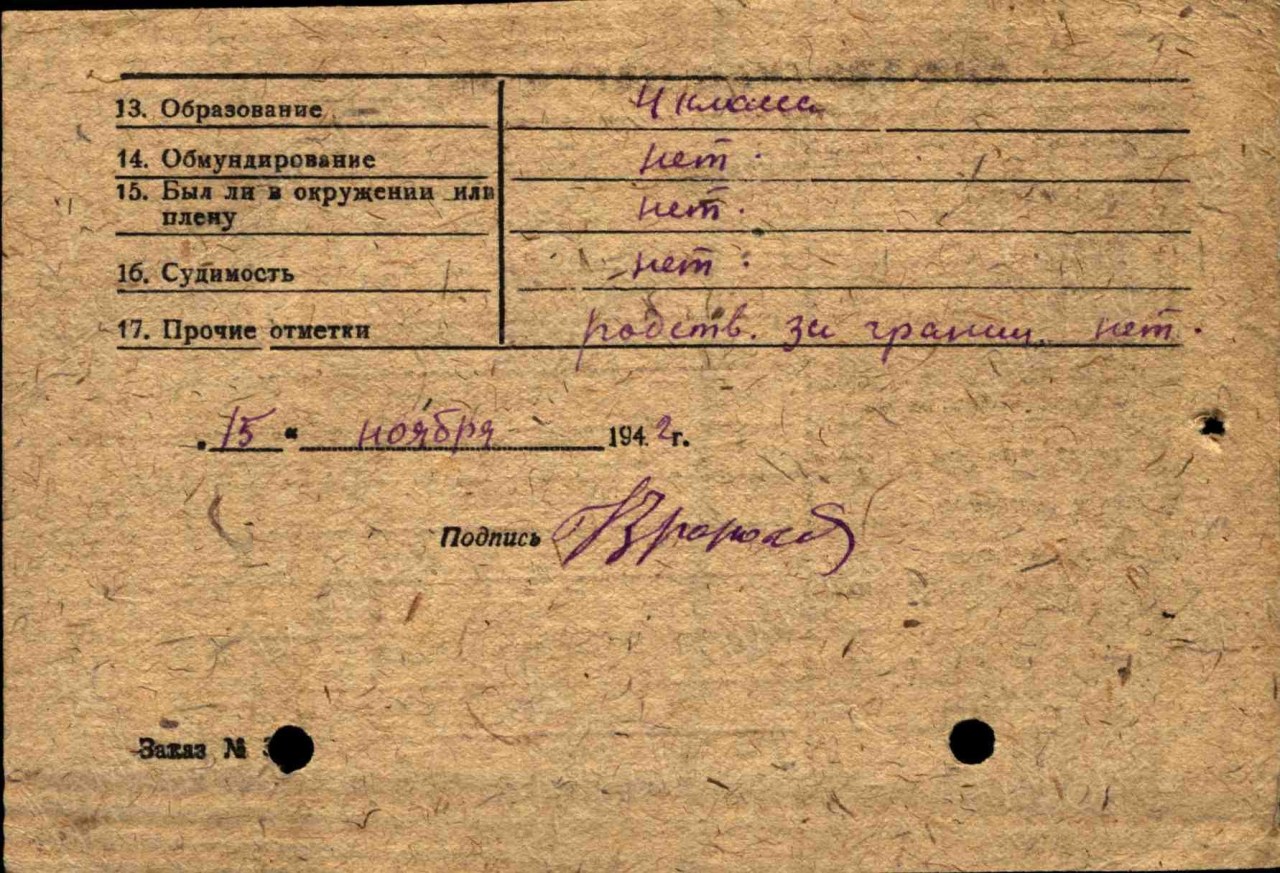 13. Образование 4 класса
14. Обмундирование нет.
15. Был ли в окружении или
плену нет.
16. Судимость нет.
17. Прочие отметки родств. за границ. нет.
„15“ ноября 1942 г.
Подпись
Заказ №